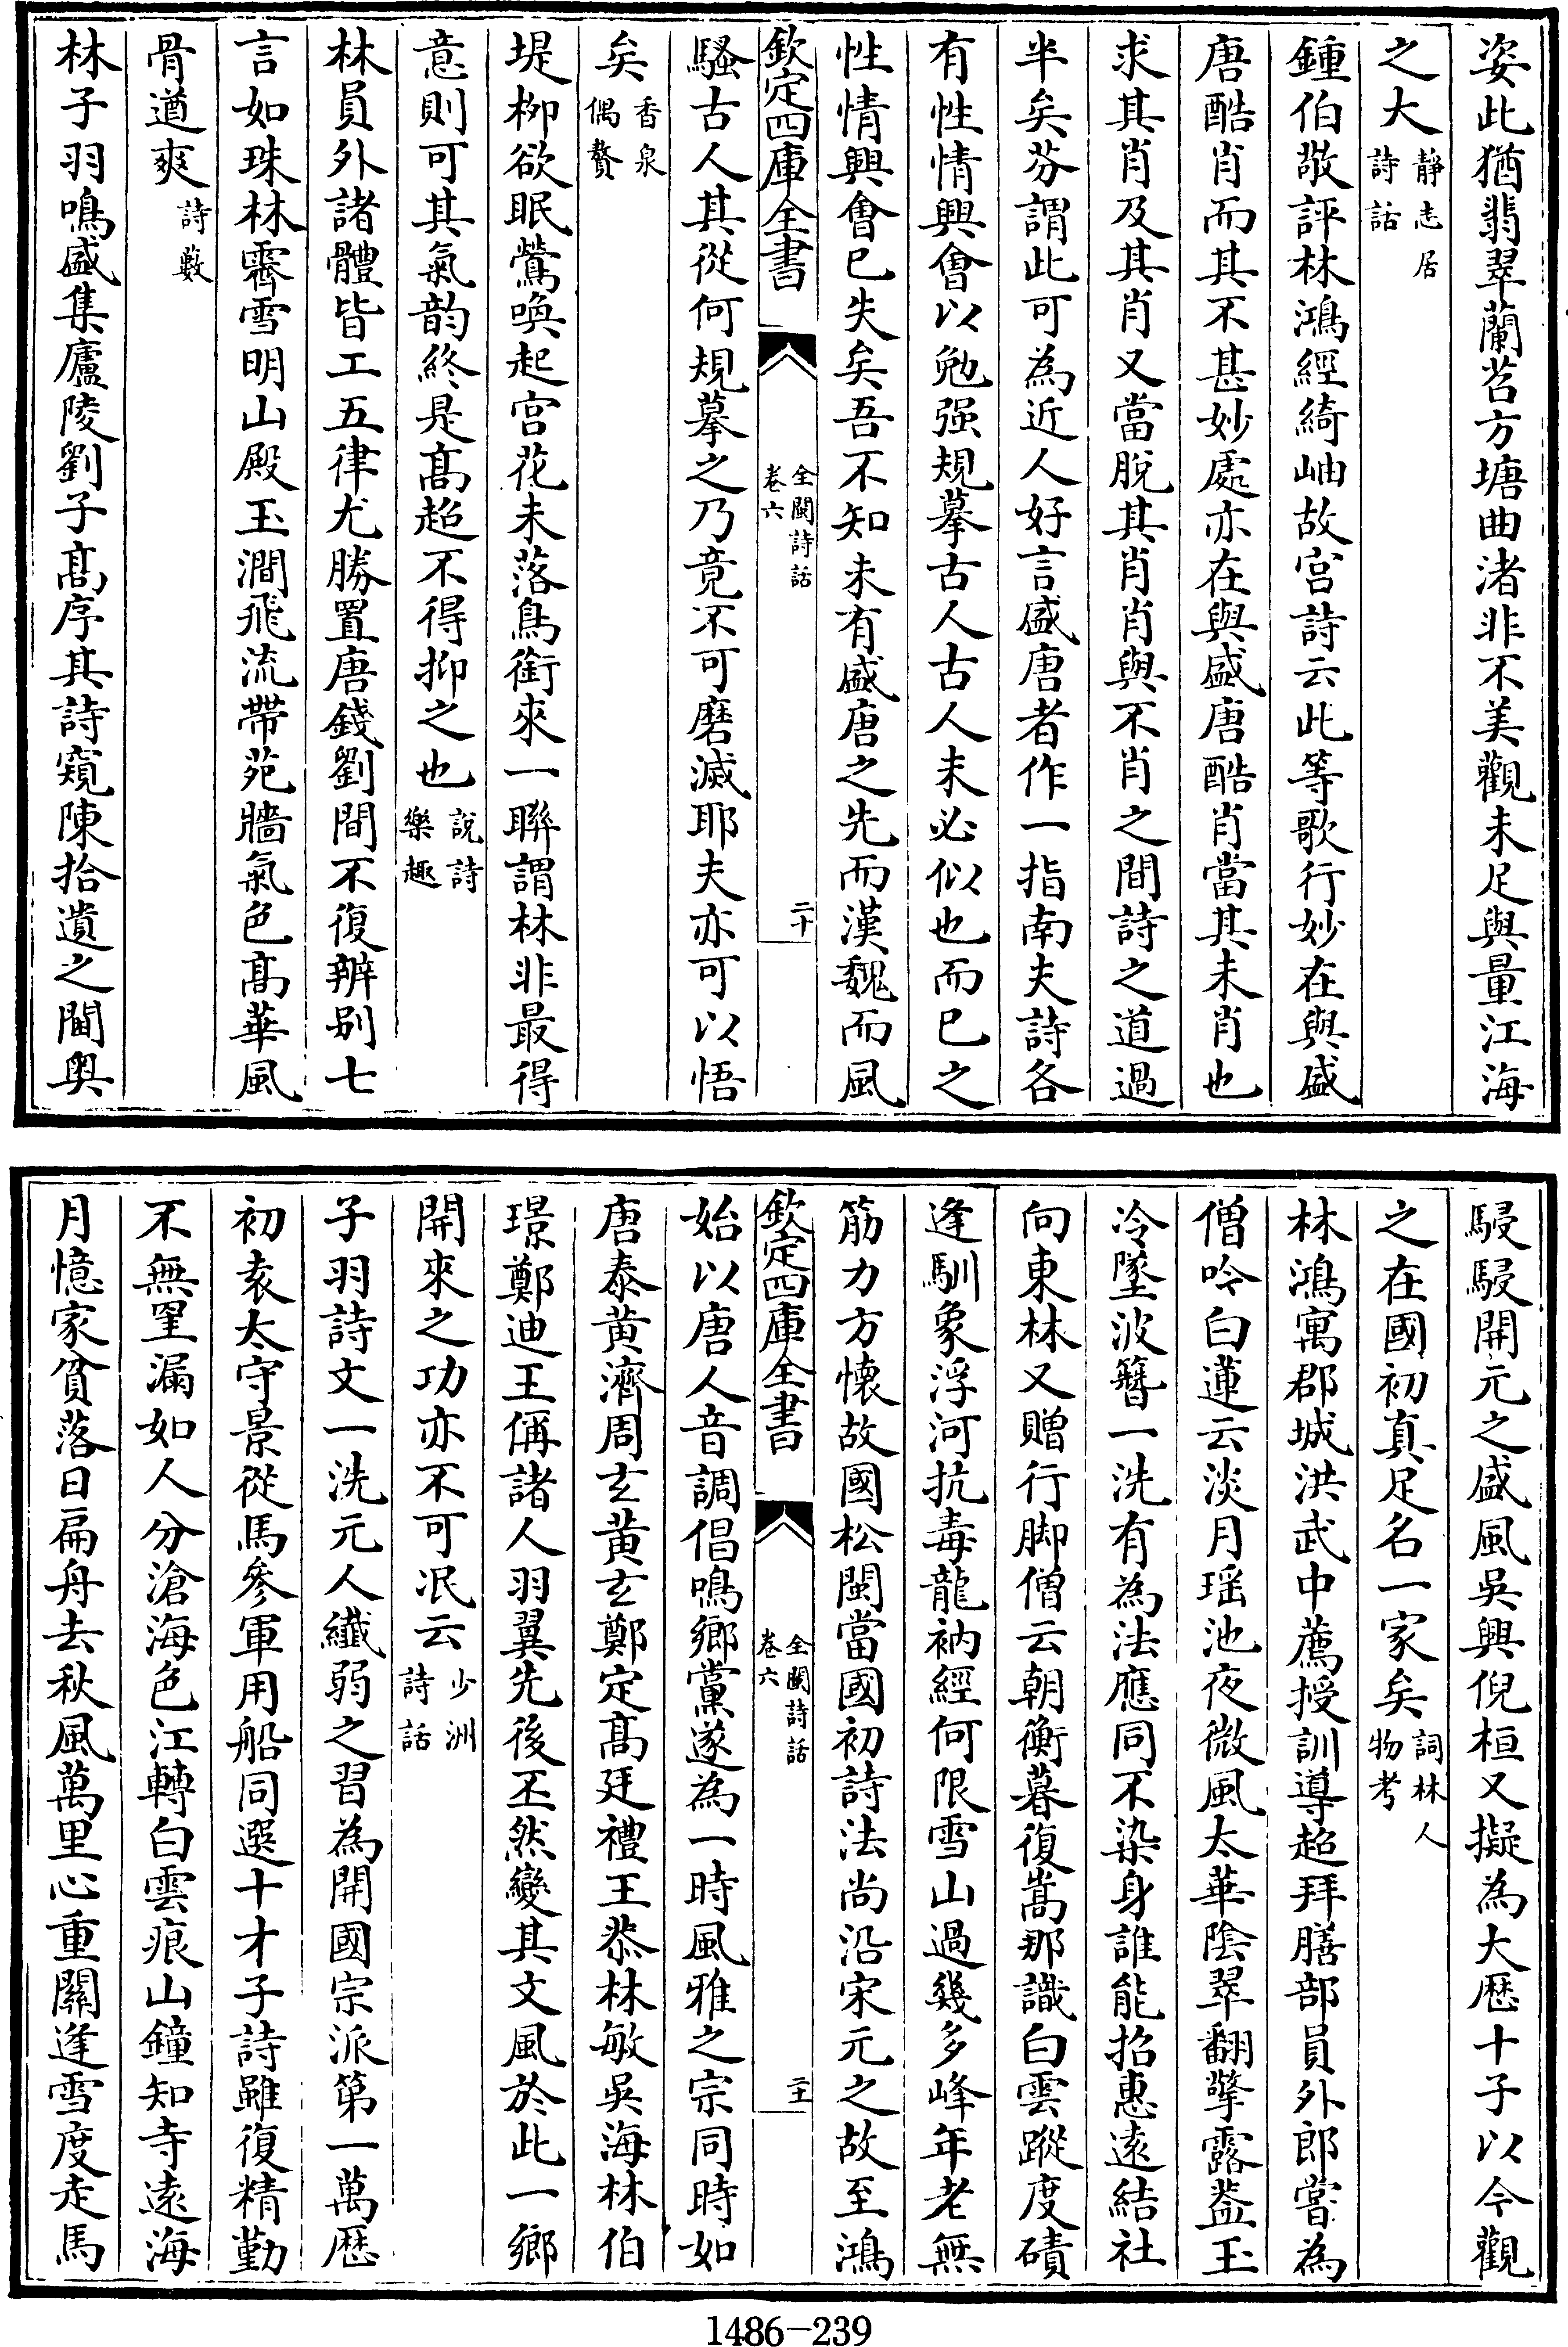 姿此猶翡翠蘭苕方塘曲渚非不美觀未足與量江海
之大靜志居詩話
鍾伯敬評林鴻經綺岫故宮詩云此等歌行妙在與盛
唐酷肖而其不甚妙處亦在與盛唐酷肖當其未肖也
求其肖及其肖又當脫其肖肖與不肖之間詩之道過
半矣芬謂此可為近人好言盛唐者作一指南夫詩各
有性情興會以勉强規摹古人古人未必似也而已之
性情興會已失矣吾不知未有盛唐之先而漢魏而風
欽定四庫全書
全閩詩話
卷六
二十
騷古人其從何規摹之乃竟不可磨滅耶夫亦可以悟
矣香泉偶贅
堤栁欲眠鶯喚起宫花未落鳥銜來一聯謂林非最得
意則可其氣韵終是髙超不得抑之也說詩樂趣
林員外諸體皆工五律尤勝置唐錢劉間不復辨别七
言如珠林霽雪明山殿玉澗飛流帶苑牆氣色髙華風
骨遒爽詩藪
林子羽鳴盛集廬陵劉子髙序其詩窺陳拾遺之閫奥
駸駸開元之盛風吳興倪桓又擬為大厯十子以今觀
之在國初真足名一家矣詞林人物考
林鴻寓郡城洪武中薦授訓導超拜膳部員外郎嘗為
僧吟白蓮云淡月瑶池夜微風太華陰翠翻擎露葢玉
冷墜波簪一洗有為法應同不染身誰能招惠逺結社
向東林又贈行脚僧云朝衡暮復嵩那識白雲蹤度磧
逢馴象浮河抗毒龍衲經何限雪山過幾多峰年老無
筋力方懷故國松閩當國初詩法尚沿宋元之故至鴻
欽定四庫全書
全閩詩話
卷六
二十一
始以唐人音調倡鳴鄉黨遂為一時風雅之宗同時如
唐泰黄濟周玄黄玄鄭定髙廷禮王恭林敏吳海林伯
璟鄭迪王偁諸人羽翼先後丕然變其文風於此一鄉
開來之功亦不可泯云少洲詩話
子羽詩文一洗元人纖弱之習為開國宗派第一萬厯
初袁太守景從馬參軍用船同選十才子詩雖復精勤
不無罣漏如人分滄海色江轉白雲痕山鐘知寺逺海
月憶家貧落日扁舟去秋風萬里心重關逢雪度走馬
1486-239